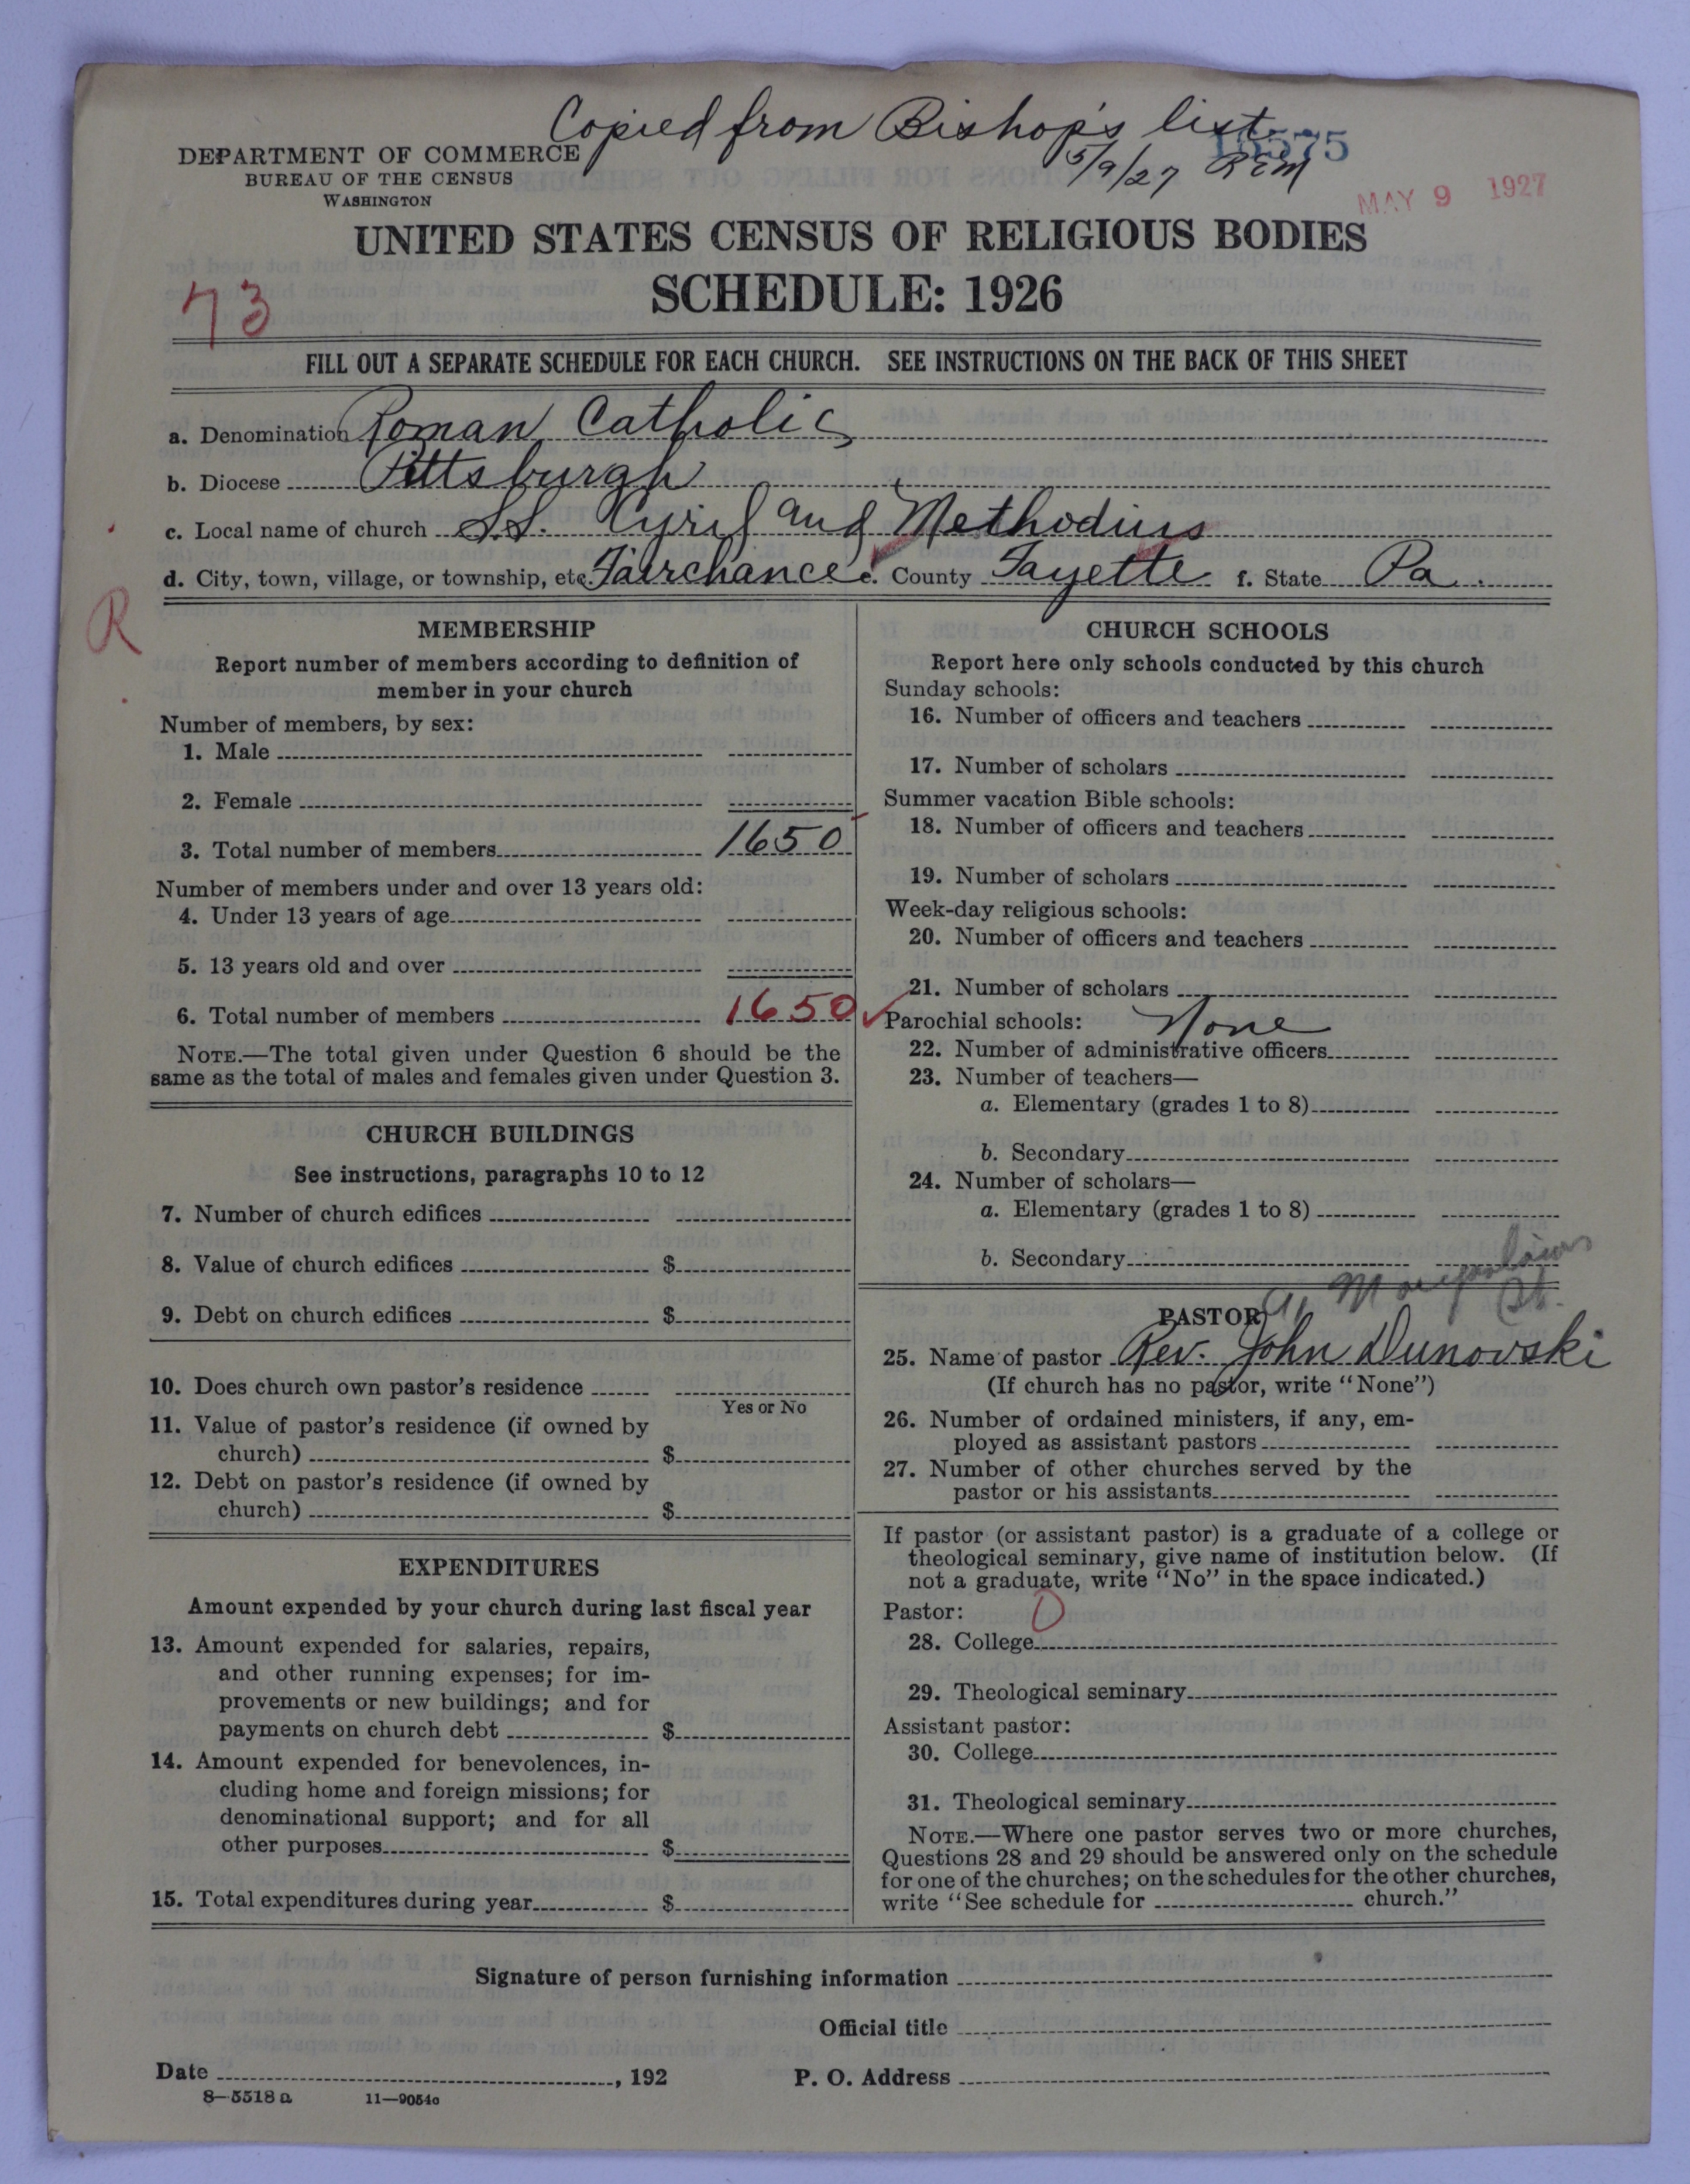 Copied from Bishop's list
5/9/27 REM
DEPARTMENT OF COMMERCE
BUREAU OF THE CENSUS
WASHINGTON
MAY 9 1927
UNITED STATES CENSUS OF RELIGIOUS BODIES
SCHEDULE: 1926
73
FILL OUT A SEPARATE SCHEDULE FOR EACH CHURCH. SEE INSTRUCTIONS ON THE BACK OF THIS SHEET
a. Denomination Roman Catholic
b. Diocese Pittsburgh
c. Local name of church S.S. Cyril and Methodius
d. City, town, village, or township, etc. Fairchance e. County Fayette f. State Pa.
R
MEMBERSHIP
Report number of members according to definition of
member in your church
Number of members, by sex:
1. Male
2. Female
3. Total number of members 1650
Number of members under and over 13 years old:
4. Under 13 years of age
5. 13 years old and over
6. Total number of members 1650
NOTE.—The total given under Question 6 should be the
same as the total of males and females given under Question 3.
CHURCH BUILDINGS
See instructions, paragraphs 10 to 12
7. Number of church edifices
8. Value of church edifices $
9. Debt on church edifices $
10. Does church own pastor's residence
Yes or No
11. Value of pastor's residence (if owned by
church) $
12. Debt on pastor's residence (if owned by
church) $
EXPENDITURES
Amount expended by your church during last fiscal year
13. Amount expended for salaries, repairs,
and other running expenses; for im-
provements or new buildings; and for
payments on church debt $
14. Amount expended for benevolences, in-
cluding home and foreign missions; for
denominational support; and for all
other purposes $
15. Total expenditures during year $
CHURCH SCHOOLS
Report here only schools conducted by this church
Sunday schools:
16. Number of officers and teachers
17. Number of scholars
Summer vacation Bible schools:
18. Number of officers and teachers
19. Number of scholars
Week-day religious schools:
20. Number of officers and teachers
21. Number of scholars
Parochial schools: None
22. Number of administrative officers
23. Number of teachers—
a. Elementary (grades 1 to 8)
b. Secondary
24. Number of scholars—
a. Elementary (grades 1 to 8)
b. Secondary
PASTOR
25. Name of pastor Rev. John Dunowski
(If church has no pastor, write "None")
26. Number of ordained ministers, if any, em-
ployed as assistant pastors
27. Number of other churches served by the
pastor or his assistants
If pastor (or assistant pastor) is a graduate of a college or
theological seminary, give name of institution below. (If
not a graduate, write "No" in the space indicated.)
Pastor: 0
28. College
29. Theological seminary
Assistant pastor:
30. College
31. Theological seminary
NOTE.—Where one pastor serves two or more churches,
Questions 28 and 29 should be answered only on the schedule
for one of the churches; on the schedules for the other churches,
write "See schedule for church."
Signature of person furnishing information
Official title
Date , 192 P. O. Address
8—5518 a 11—9054c